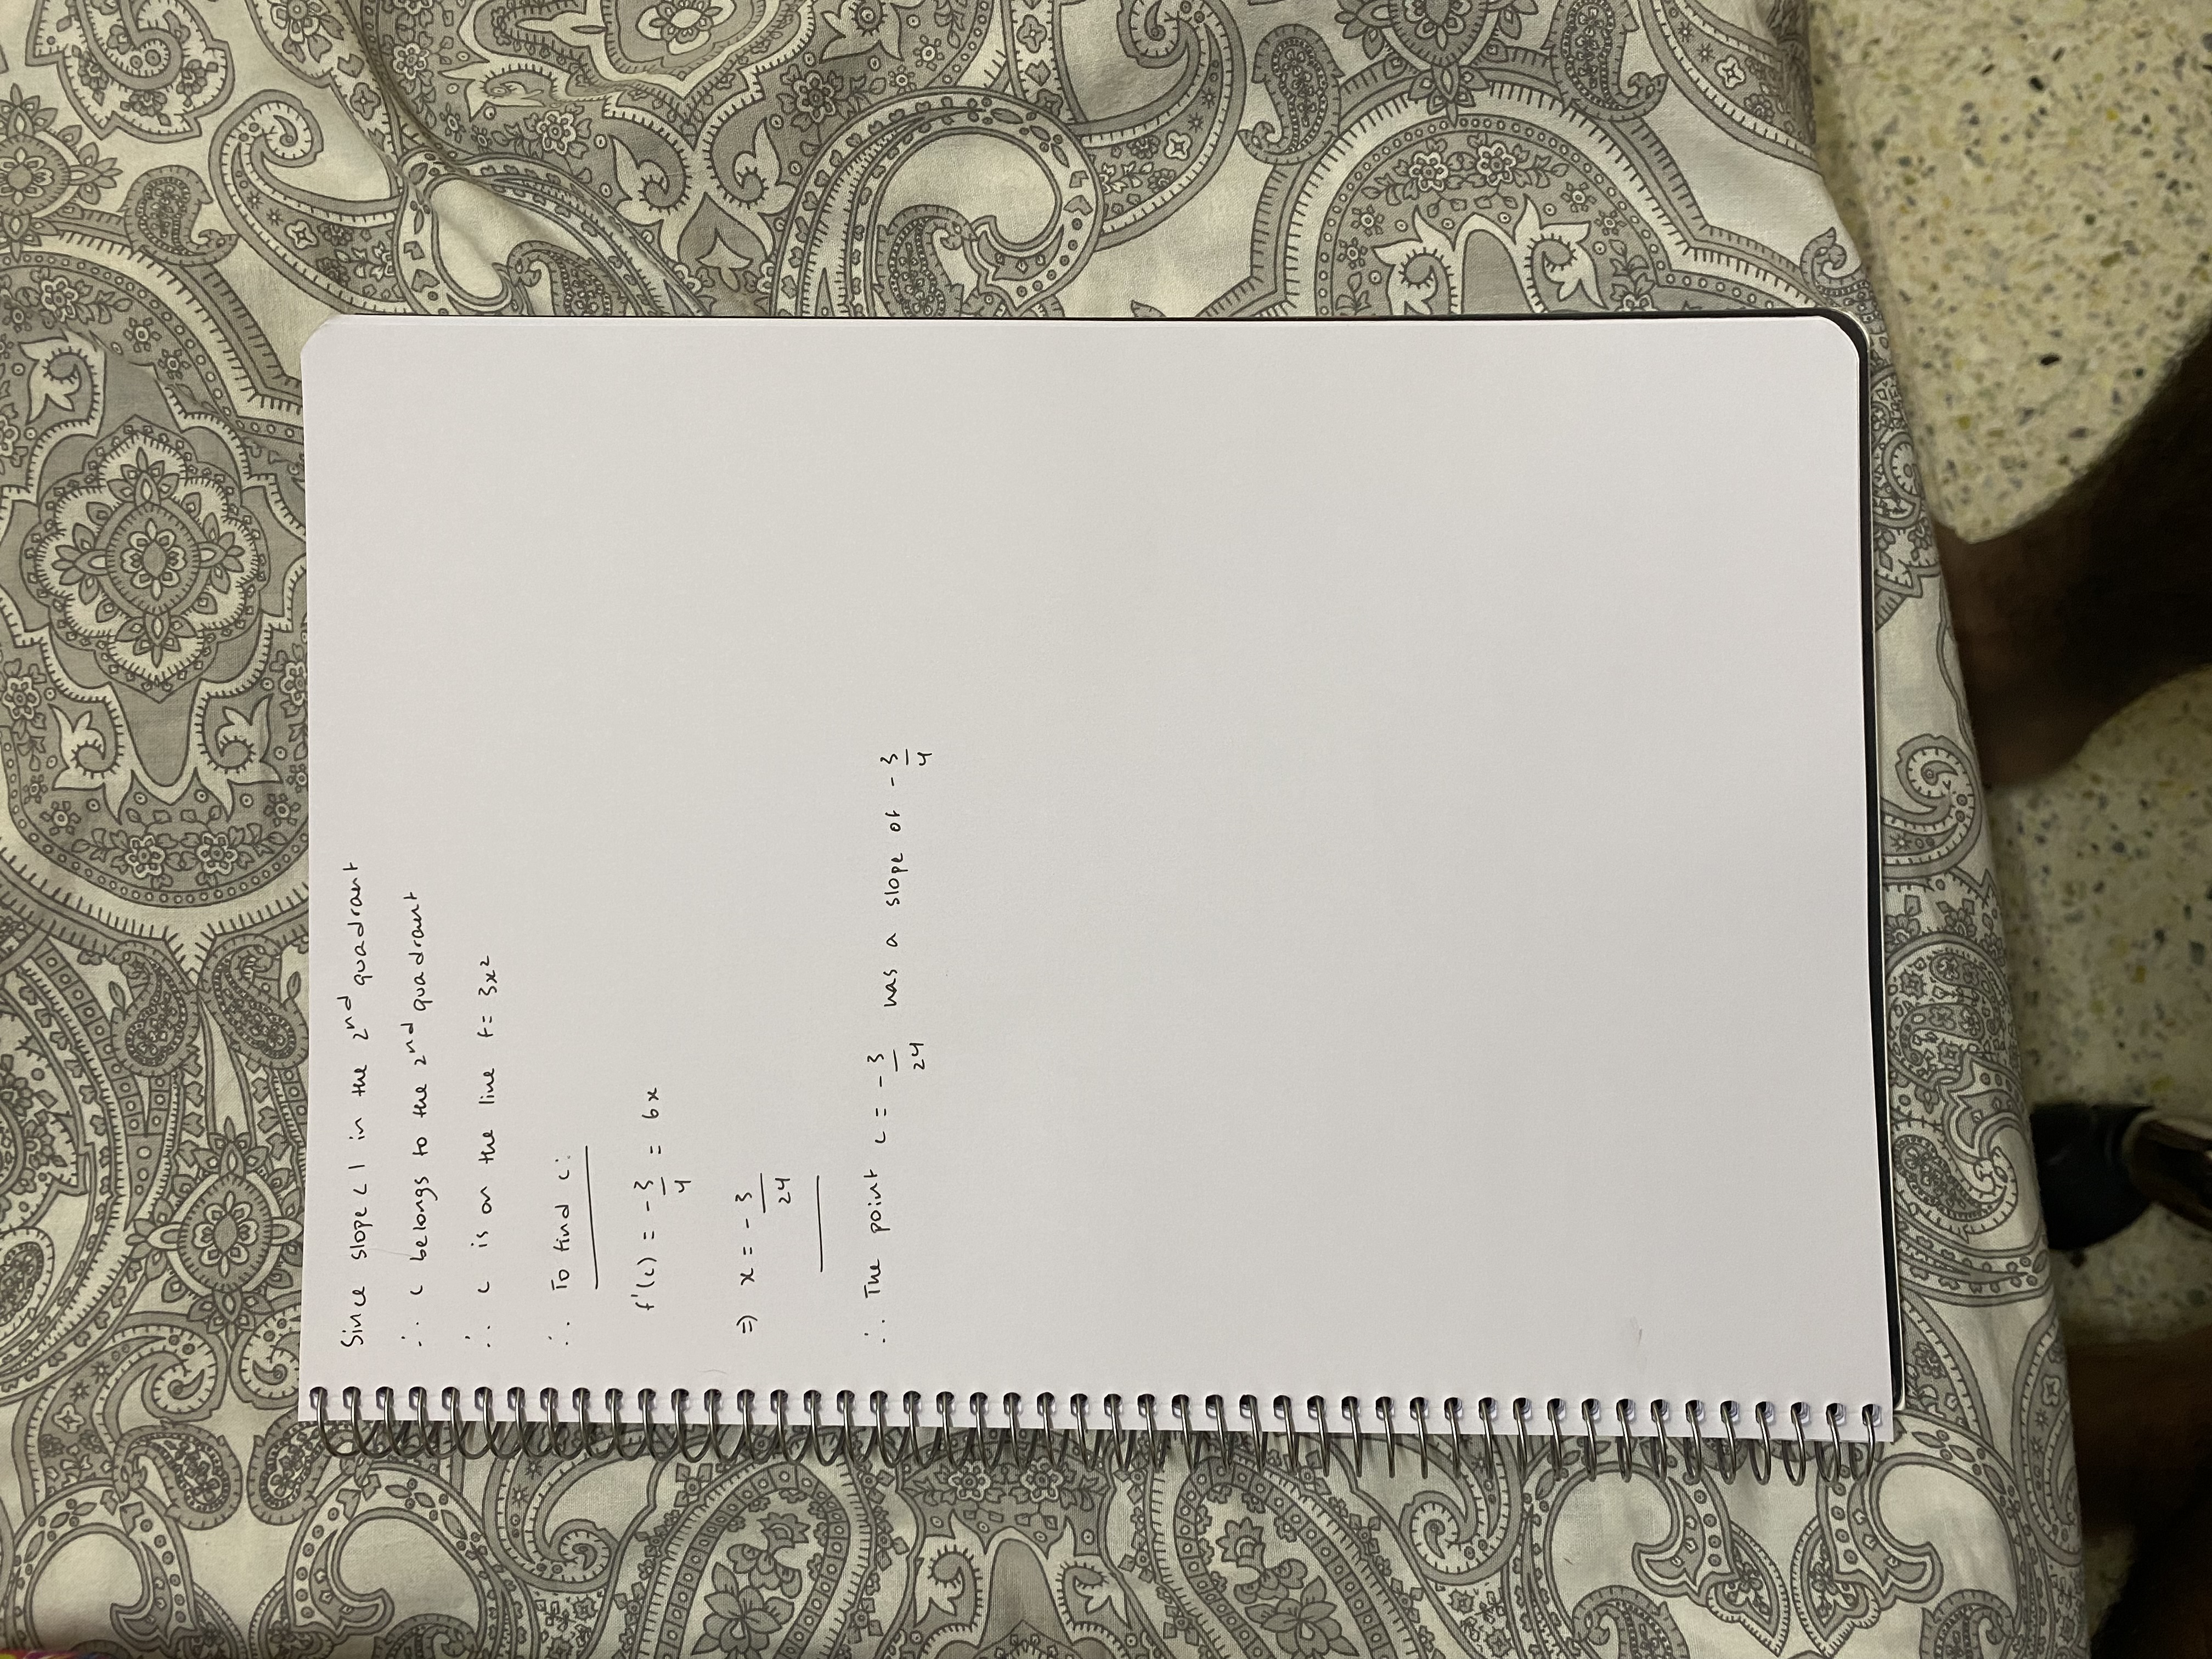 Since slope < 1 in the 2nd quadrant
∴ c belongs to the 2nd quadrant
∴ c is on the line f = 3x²
∴ To find c:
f'(c) = -3/4 = 6x
⇒ x = -3/24
∴ The point c = -3/24 has a slope of -3/4